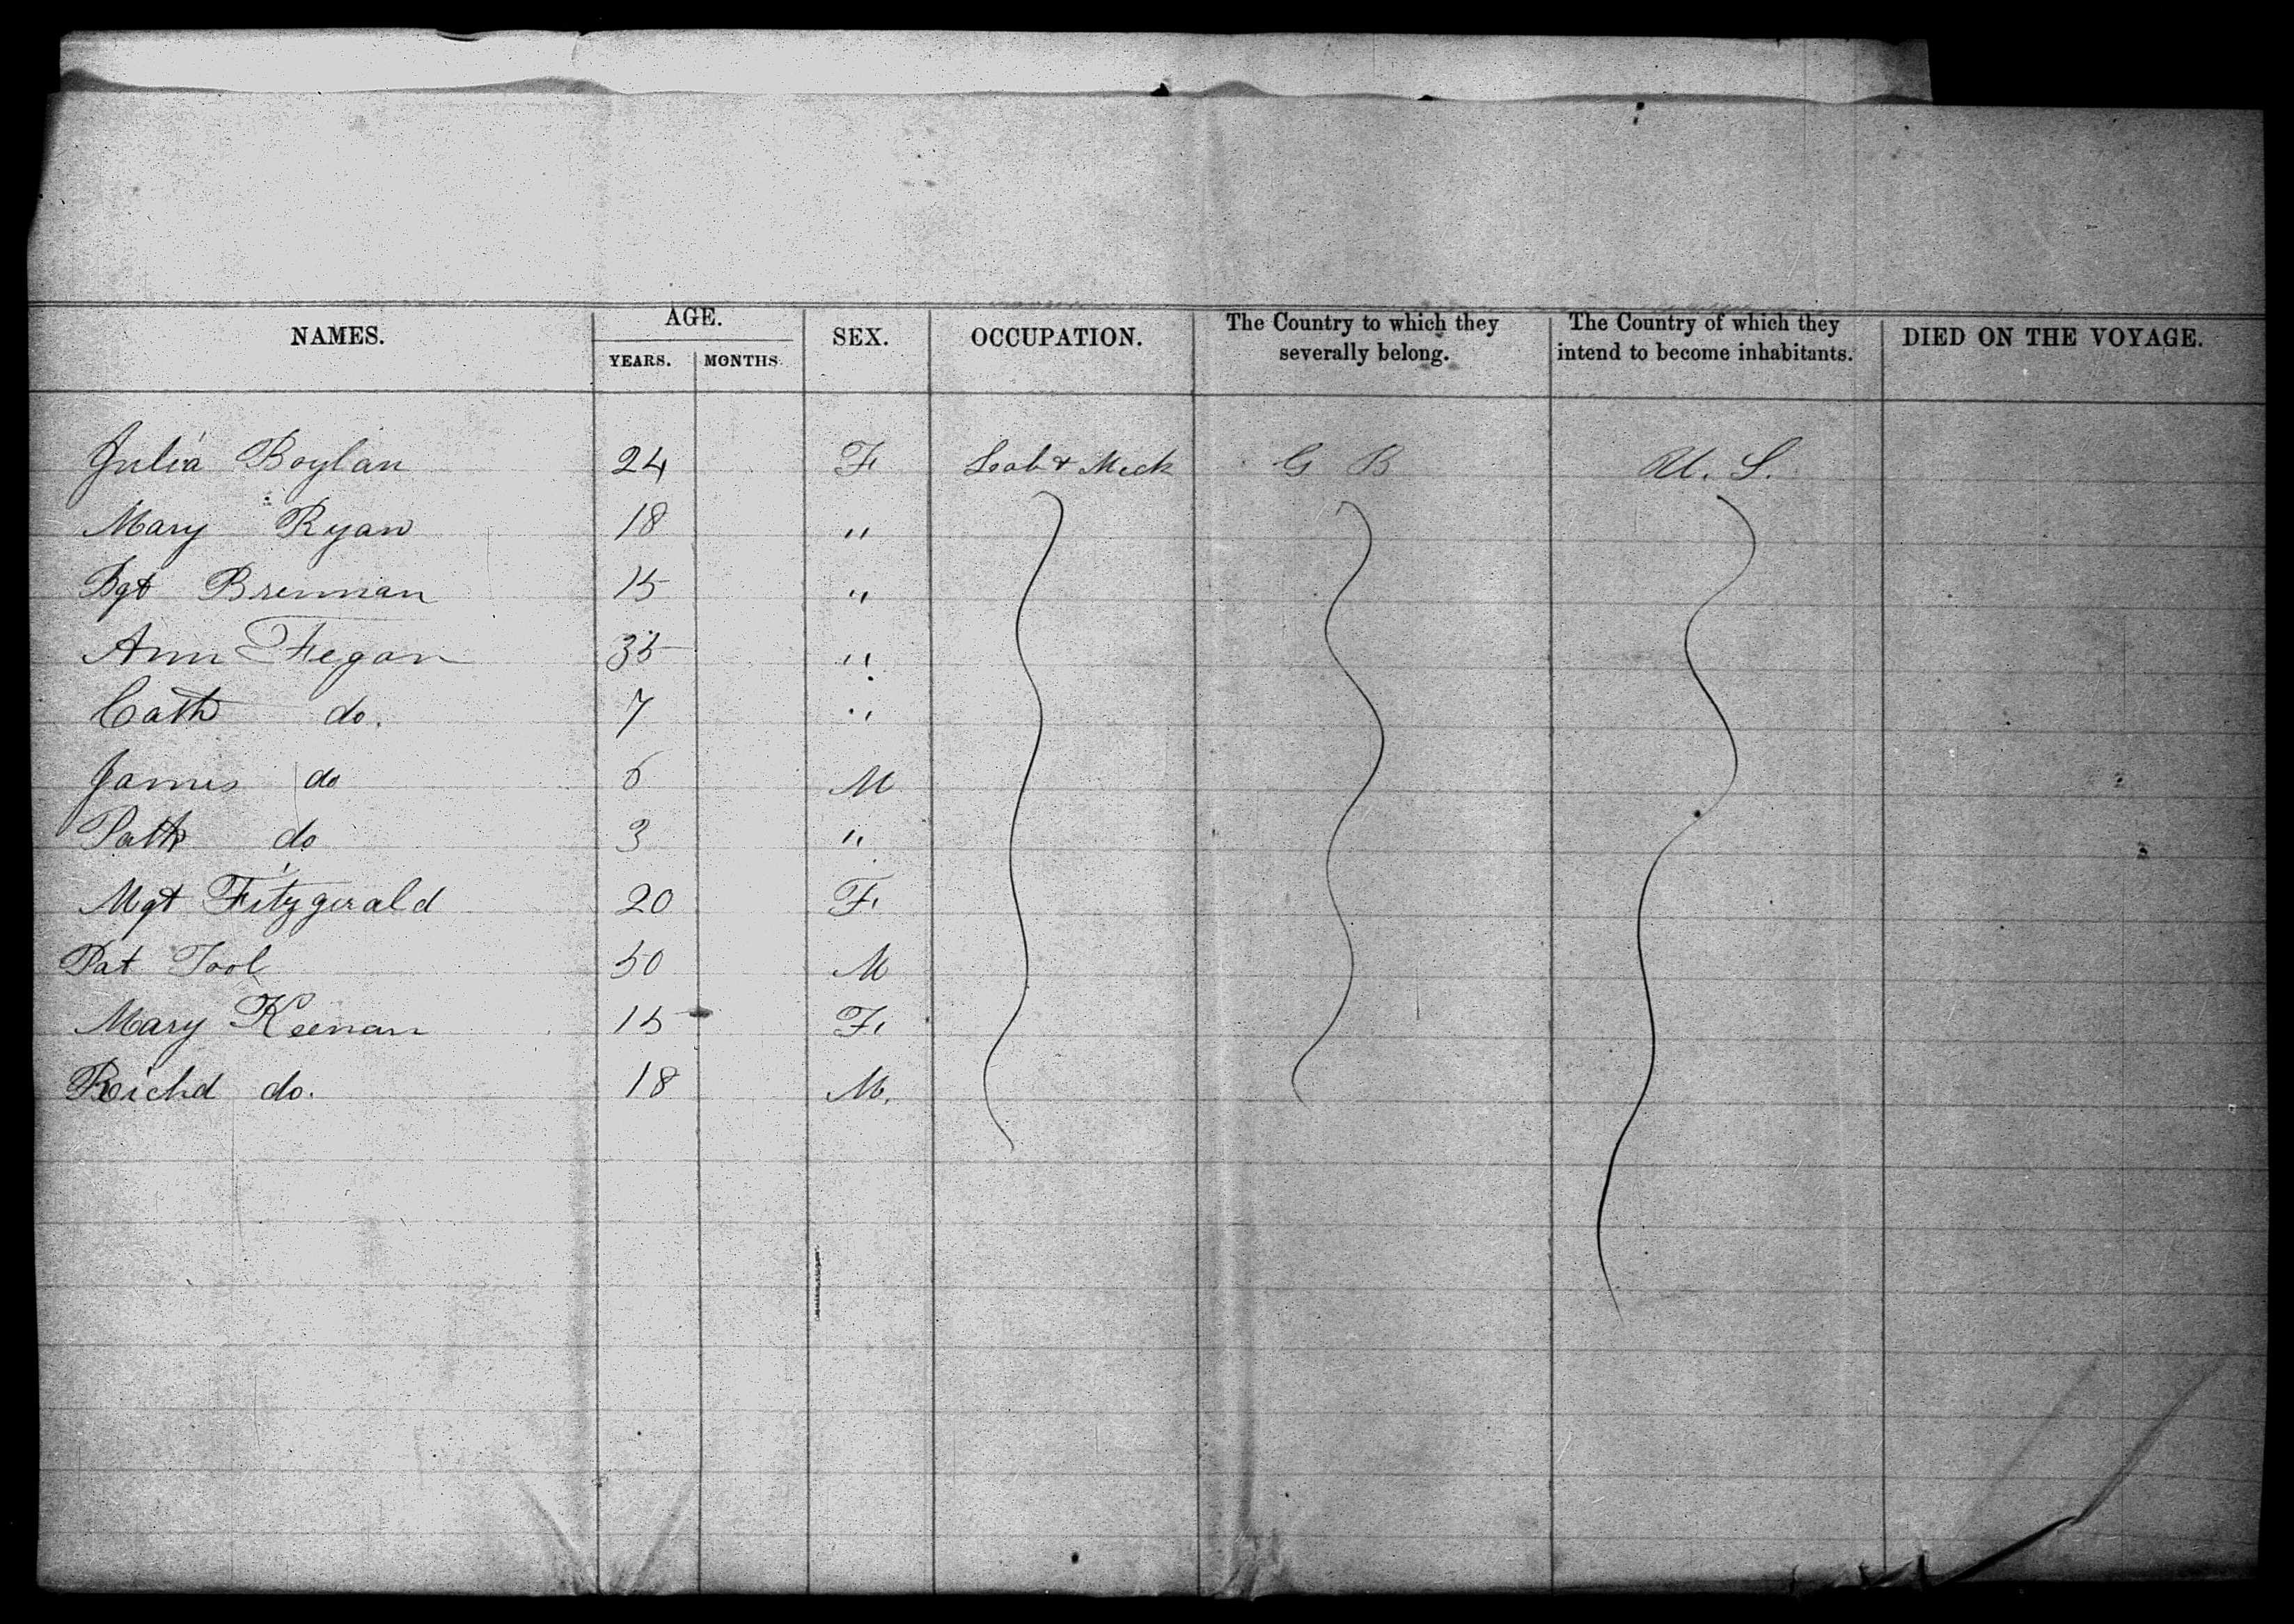 NAMES. AGE. SEX. OCCUPATION. The Country to which they severally belong. The Country of which they intend to become inhabitants. DIED ON THE VOYAGE.
YEARS. MONTHS.
Julia Boylan 24 F Lab & Mech G B U. S.
Mary Ryan 18 "
Bgt Brennan 15 "
Ann Fegan 35 "
Cath do. 7 "
James do 6 M
Patk do 3 "
Mgt Fitzgerald 20 F
Pat Tool 50 M
Mary Keenan 15 F
Richd do. 18 M.